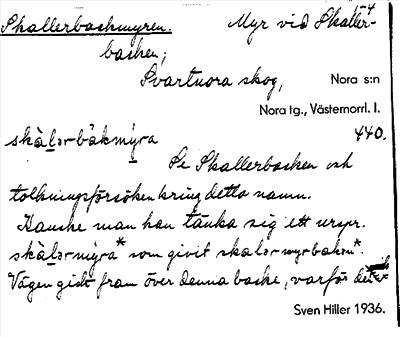 Skallerbackmyren. Myr vid Skaller-
backen;
Svartnora skog, Nora s:n
Nora tg., Västernorrl. l.
skàlərbàkmýra 440.
Se Skallerbacken och
tolkningsförsöken kring detta namn.
Kanske man kan tänka sig ett urspr.
skàlərmýra* som givit skalərmyrbakən*.
Vägen gick fram över denna backe, varför det
Sven Hiller 1936.